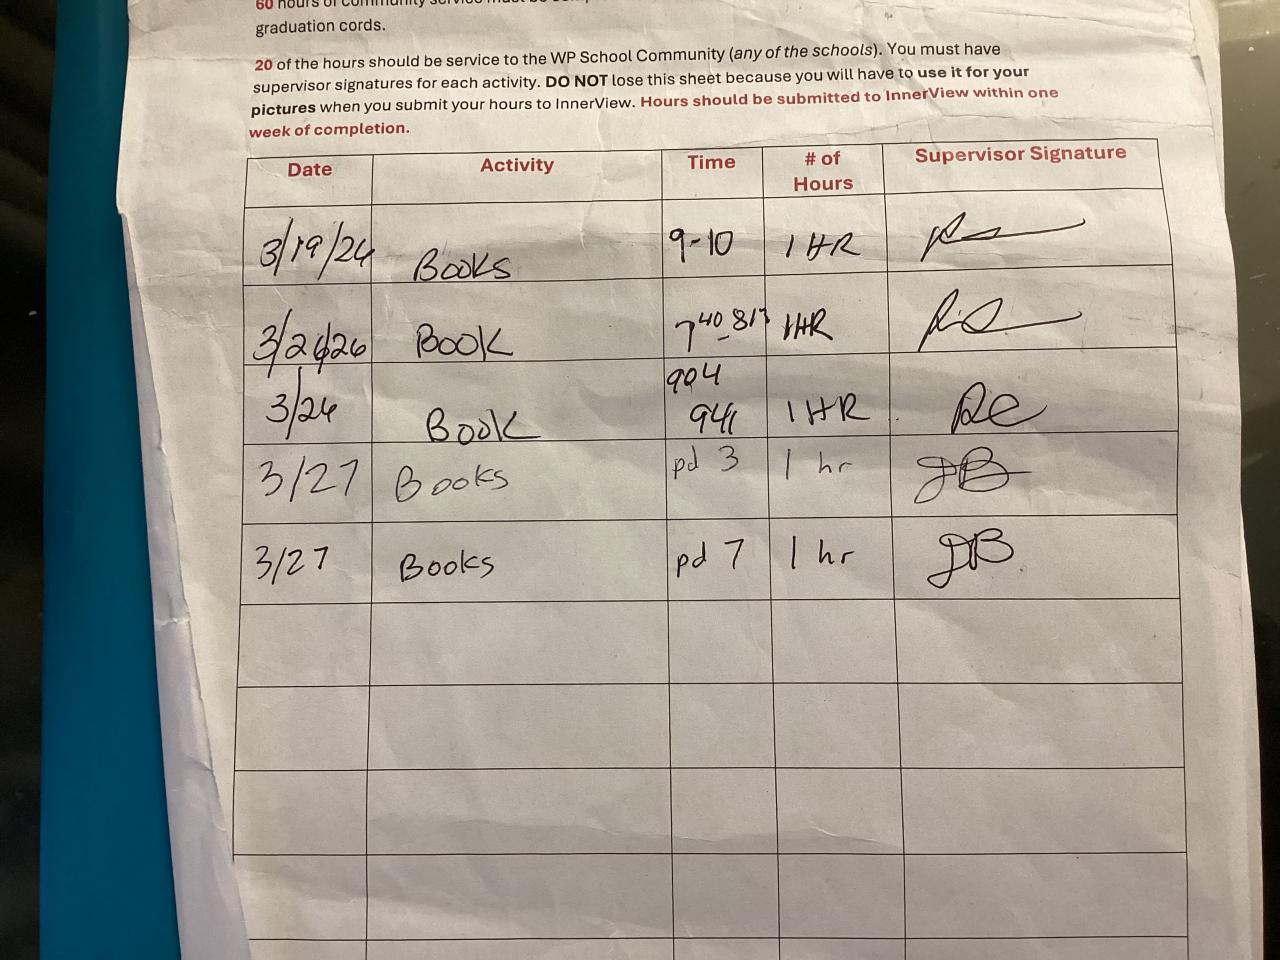 graduation cords.
20 of the hours should be service to the WP School Community (any of the schools). You must have
supervisor signatures for each activity. DO NOT lose this sheet because you will have to use it for your
pictures when you submit your hours to InnerView. Hours should be submitted to InnerView within one
week of completion.
Date Activity Time # of Hours Supervisor Signature
3/19/26 Books 9-10 1 HR
Book 1HR
3/26 Book 904 941 1 HR
3/27 Books pd 3 1 hr JB
3/27 Books pd 7 1 hr JB